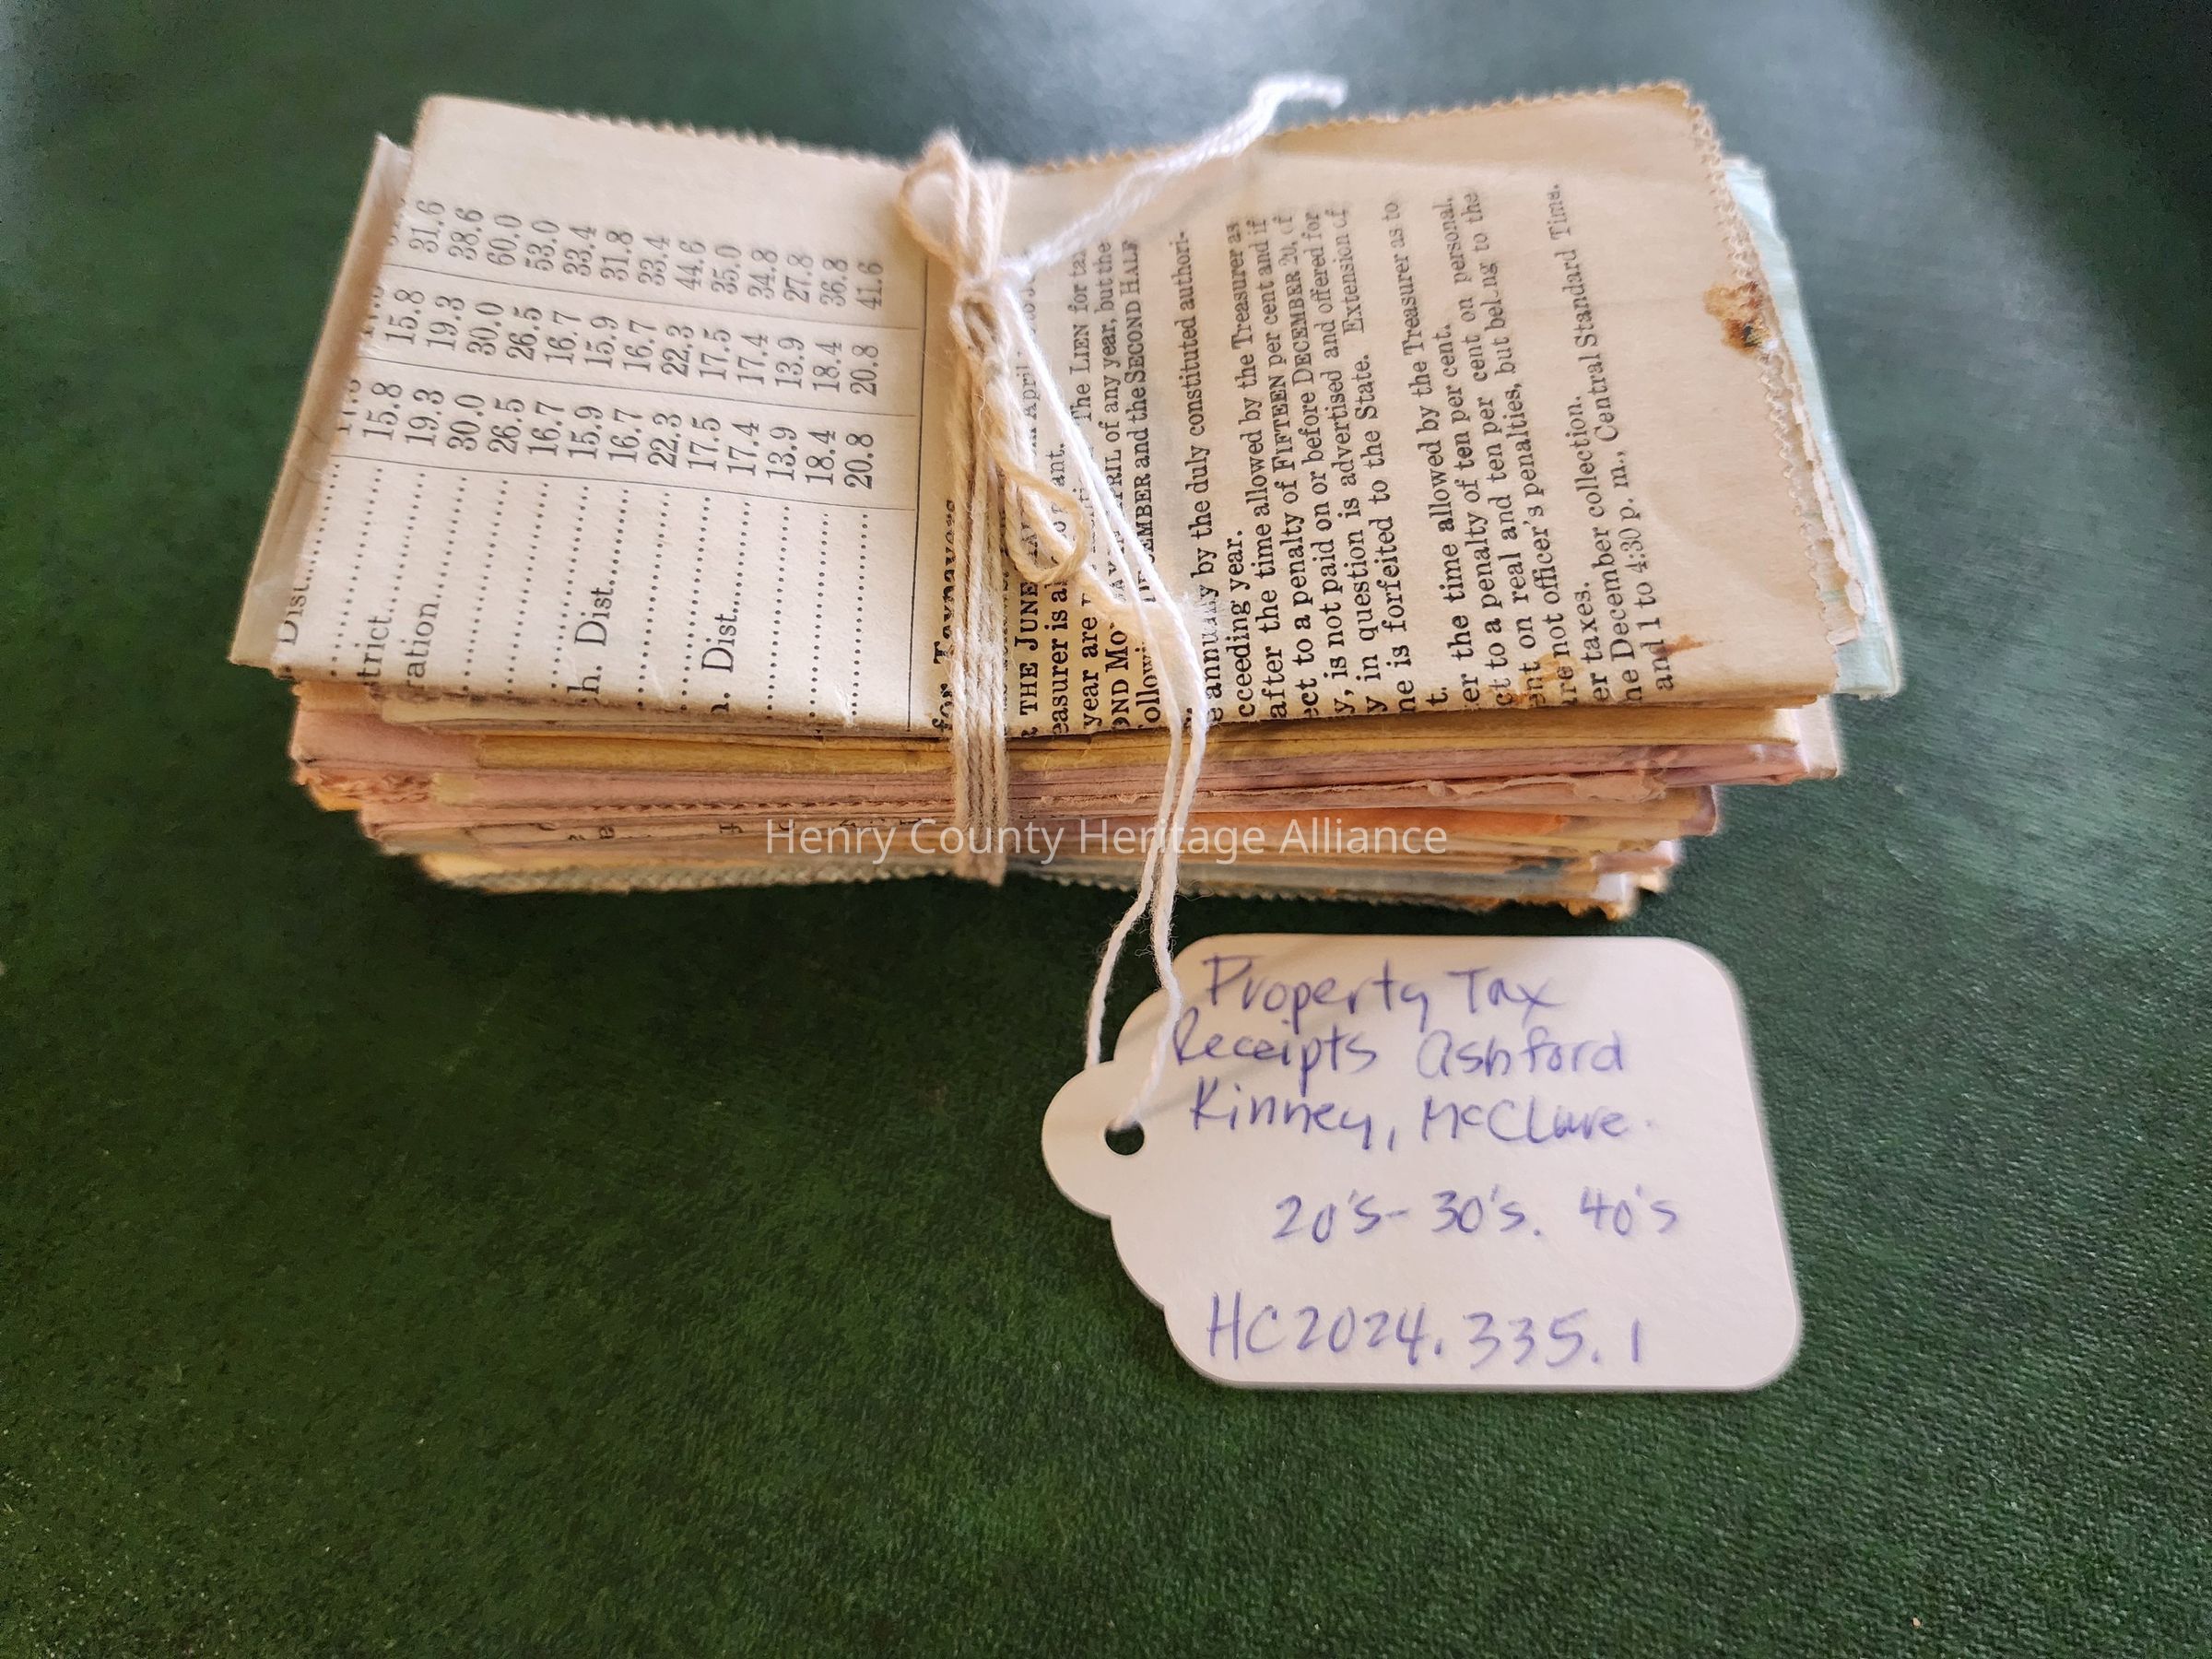 31.6
38.6
60.0
53.0
33.4
31.8
33.4
44.6
35.0
34.8
27.8
36.8
41.6
15.8
19.3
30.0
26.5
16.7
15.9
16.7
22.3
17.5
17.4
13.9
18.4
20.8
15.8
19.3
30.0
26.5
16.7
15.9
16.7
22.3
17.5
17.4
13.9
18.4
20.8
Dist.
trict
ration
h. Dist.
Dist.
for Taxpayers
THE JUNE
easurer is
The LIEN for
year are
APRIL of any year, but the
OND
DECEMBER and the SECOND HALF
annually by the duly constituted authori-
cceeding year.
after the time allowed by the Treasurer as
ect to a penalty of FIFTEEN per cent and if
y, is not paid on or before DECEMBER 20, of
y in question is advertised and offered for
ne is forfeited to the State. Extension of
t.
er the time allowed by the Treasurer as to
ct to a penalty of ten per cent.
ent on real and ten per cent on personal.
are not officer's penalties, but belong to the
er taxes.
he December collection.
and 1 to 4:30 p. m., Central Standard Time.
Henry County Heritage Alliance
Property Tax
Receipts Ashford
Kinney, McClure.
20's- 30's. 40's
HC2024.335.1